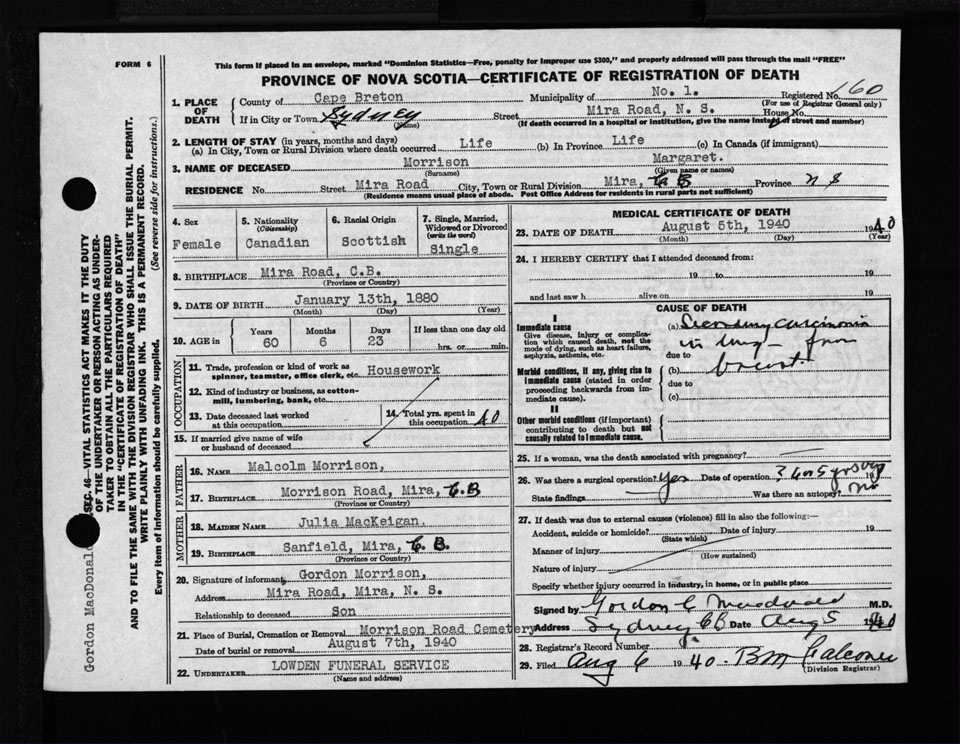 FORM 6
This form if placed in an envelope, marked "Dominion Statistics—Free, penalty for improper use $300," and properly addressed will pass through the mail "FREE"
PROVINCE OF NOVA SCOTIA—CERTIFICATE OF REGISTRATION OF DEATH
1. PLACE OF DEATH County of Cape Breton Municipality of No. 1. Registered No. 160
(For use of Registrar General only)
If in City or Town Sydney (Name) Street Mira Road, N. S. House No.
(If death occurred in a hospital or institution, give the name instead of street and number)
2. LENGTH OF STAY (in years, months and days)
(a) In City, Town or Rural Division where death occurred Life (b) In Province Life (c) In Canada (if immigrant)
3. NAME OF DECEASED Morrison Margaret.
(Surname) (Given name or names)
RESIDENCE No. Street Mira Road City, Town or Rural Division Mira, C B Province N S
(Residence means usual place of abode. Post Office Address for residents in rural parts not sufficient)
4. Sex
Female
5. Nationality
(Citizenship)
Canadian
6. Racial Origin
Scottish
7. Single, Married,
Widowed or Divorced
(write the word)
Single
8. BIRTHPLACE Mira Road, C.B.
(Province or Country)
9. DATE OF BIRTH January 13th, 1880
(Month) (Day) (Year)
10. AGE in Years Months Days If less than one day old
60 6 23 hrs. or min.
OCCUPATION
11. Trade, profession or kind of work as
spinner, teamster, office clerk, etc. Housework
12. Kind of industry or business, as cotton-
mill, lumbering, bank, etc.
13. Date deceased last worked
at this occupation
14. Total yrs. spent in
this occupation 40
15. If married give name of wife
or husband of deceased
FATHER
16. NAME Malcolm Morrison,
17. BIRTHPLACE Morrison Road, Mira, C.B
(Province or Country)
MOTHER
18. MAIDEN NAME Julia MacKeigan.
19. BIRTHPLACE Sanfield, Mira, C. B.
(Province or Country)
20. Signature of informant Gordon Morrison,
Address Mira Road, Mira, N. S.
Relationship to deceased Son
21. Place of Burial, Cremation or Removal Morrison Road Cemetery
Date of burial or removal August 7th, 1940
22. UNDERTAKER LOWDEN FUNERAL SERVICE
(Name and address)
MEDICAL CERTIFICATE OF DEATH
23. DATE OF DEATH August 5th, 1940 1940
(Month) (Day) (Year)
24. I HEREBY CERTIFY that I attended deceased from:
19 to 19
and last saw h alive on 19
CAUSE OF DEATH
I
Immediate cause
Give disease, injury or complica-
tion which caused death, not the
mode of dying, such as heart failure,
asphyxia, asthenia, etc.
Morbid conditions, if any, giving rise to
immediate cause (stated in order
proceeding backwards from im-
mediate cause).
II
Other morbid conditions (if important)
contributing to death but not
causally related to immediate cause.
(a) Secondary carcinoma
in lung – from
due to
(b) breast.
due to
(c)
25. If a woman, was the death associated with pregnancy?
26. Was there a surgical operation? Yes Date of operation ? 4 or 5 yrs ago 19
State findings Was there an autopsy? No
27. If death was due to external causes (violence) fill in also the following:—
Accident, suicide or homicide? Date of injury 19
(State which)
Manner of injury
(How sustained)
Nature of injury
Specify whether injury occurred in industry, in home, or in public place
Signed by Gordon C Macdonald M.D.
Address Sydney CB Date Aug 5 1940
28. Registrar's Record Number
29. Filed Aug 6 1940 B M Falconer
(Division Registrar)
SEC. 46—VITAL STATISTICS ACT MAKES IT THE DUTY
OF THE UNDERTAKER OR PERSON ACTING AS UNDER-
TAKER TO OBTAIN ALL THE PARTICULARS REQUIRED
IN THE "CERTIFICATE OF REGISTRATION OF DEATH"
AND TO FILE THE SAME WITH THE DIVISION REGISTRAR WHO SHALL ISSUE THE BURIAL PERMIT.
WRITE PLAINLY WITH UNFADING INK. THIS IS A PERMANENT RECORD.
Every item of information should be carefully supplied. (See reverse side for instructions.)
Gordon MacDonald